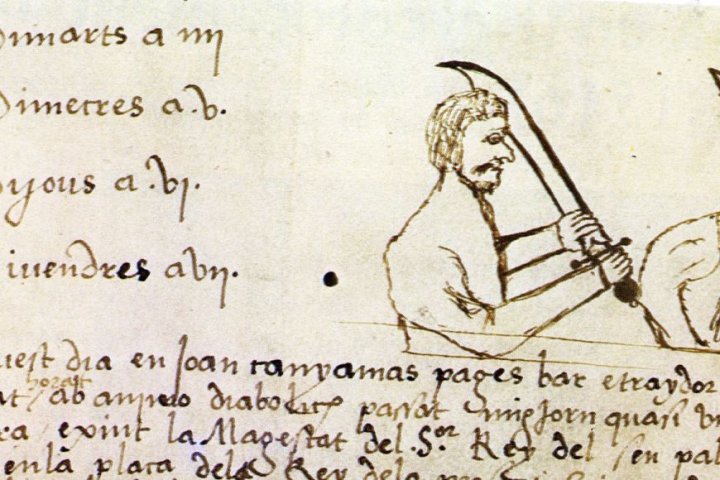 Dimarts a iiij
Dimecres a .v.
Dijous a .vj.
iuendres a vij.
uest dia en Joan canyamas pages bar e traydor
horat
at ab animo diabolich passat migjorn quasi v
ra exint la Magestat del .S.or Rey del seu pal
en la plaça del Rey dela